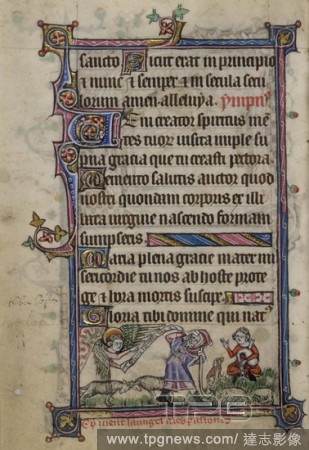 sancto Sicut erat in principio
& nunc & semper & in secula secu
lorum amen alleluya. ympn'
Veni creator spiritus me
tes tuor visita imple su
pna gracia que tu creasti pectora
Memento salutis auctor quod
nostri quondam corporis ex illi
bata virgine nascendo formam
sumpseris.
Maria plena gracie mater mi
sericordie tu nos ab hoste prote
ge & hora mortis suscipe
Gloria tibi domine qui nat'
Cy vient laungel
TPG
www.tpgnews.com/ 達志影像